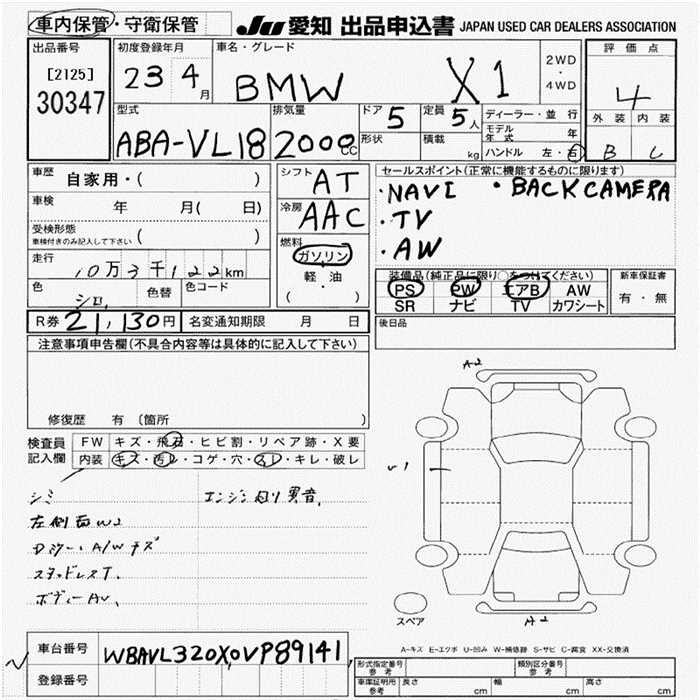 車内保管・守衛保管 JU 愛知 出品申込書 JAPAN USED CAR DEALERS ASSOCIATION
出品番号 初度登録年月 車名・グレード 2WD・4WD 評価点
[2125] 23 4月 BMW X1 4
30347
型式 排気量 ドア 5 定員 5人 ディーラー・並行 外装 内装
ABA-VL18 2000cc 形状 積載 kg モデル年式 年
ハンドル 左・右 B C
車歴 自家用・( ) シフト AT セールスポイント(正常に機能するものに限ります)
車検 年 月( 日) 冷房 AAC ・NAVI ・BACK CAMERA
受検形態 ( ) ・TV
車検付きのみ記入して下さい 燃料 ・AW
走行 10万3千122km ガソリン 装備品(純正品に限り○をつけてください) 新車保証書
色 シロ 色替 色コード 軽・油 PS PW エアB AW 有・無
・( ) SR ナビ TV カワシート
R券 21,130円 名変通知期限 月 日 後日品
注意事項申告欄(不具合内容等は具体的に記入して下さい)
修復歴 有 (箇所 )
A2
検査員 FW キズ・飛石・ヒビ割・リペア跡・X要
記入欄 内装 キズ・汚レ・コゲ・穴・スレ・キレ・破レ
シミ エンジン回り異音
左側面W2
A/Wキズ
スタッドレスT.
ボディーAU、
スペア A2
A-キズ E-エクボ U-凹み W-補修跡 S-サビ C-腐食 XX-交換済
車台番号 WBAVL320X0VP89141
登録番号
形式指定番号 参考 類別区分番号 参考
車庫証明用 参考 長さ cm 幅 cm 高さ cm